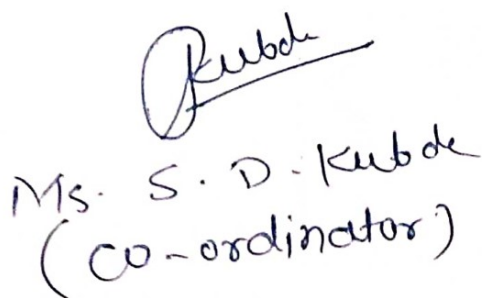 Kubde
Ms. S. D. Kubde
(co-ordinator)